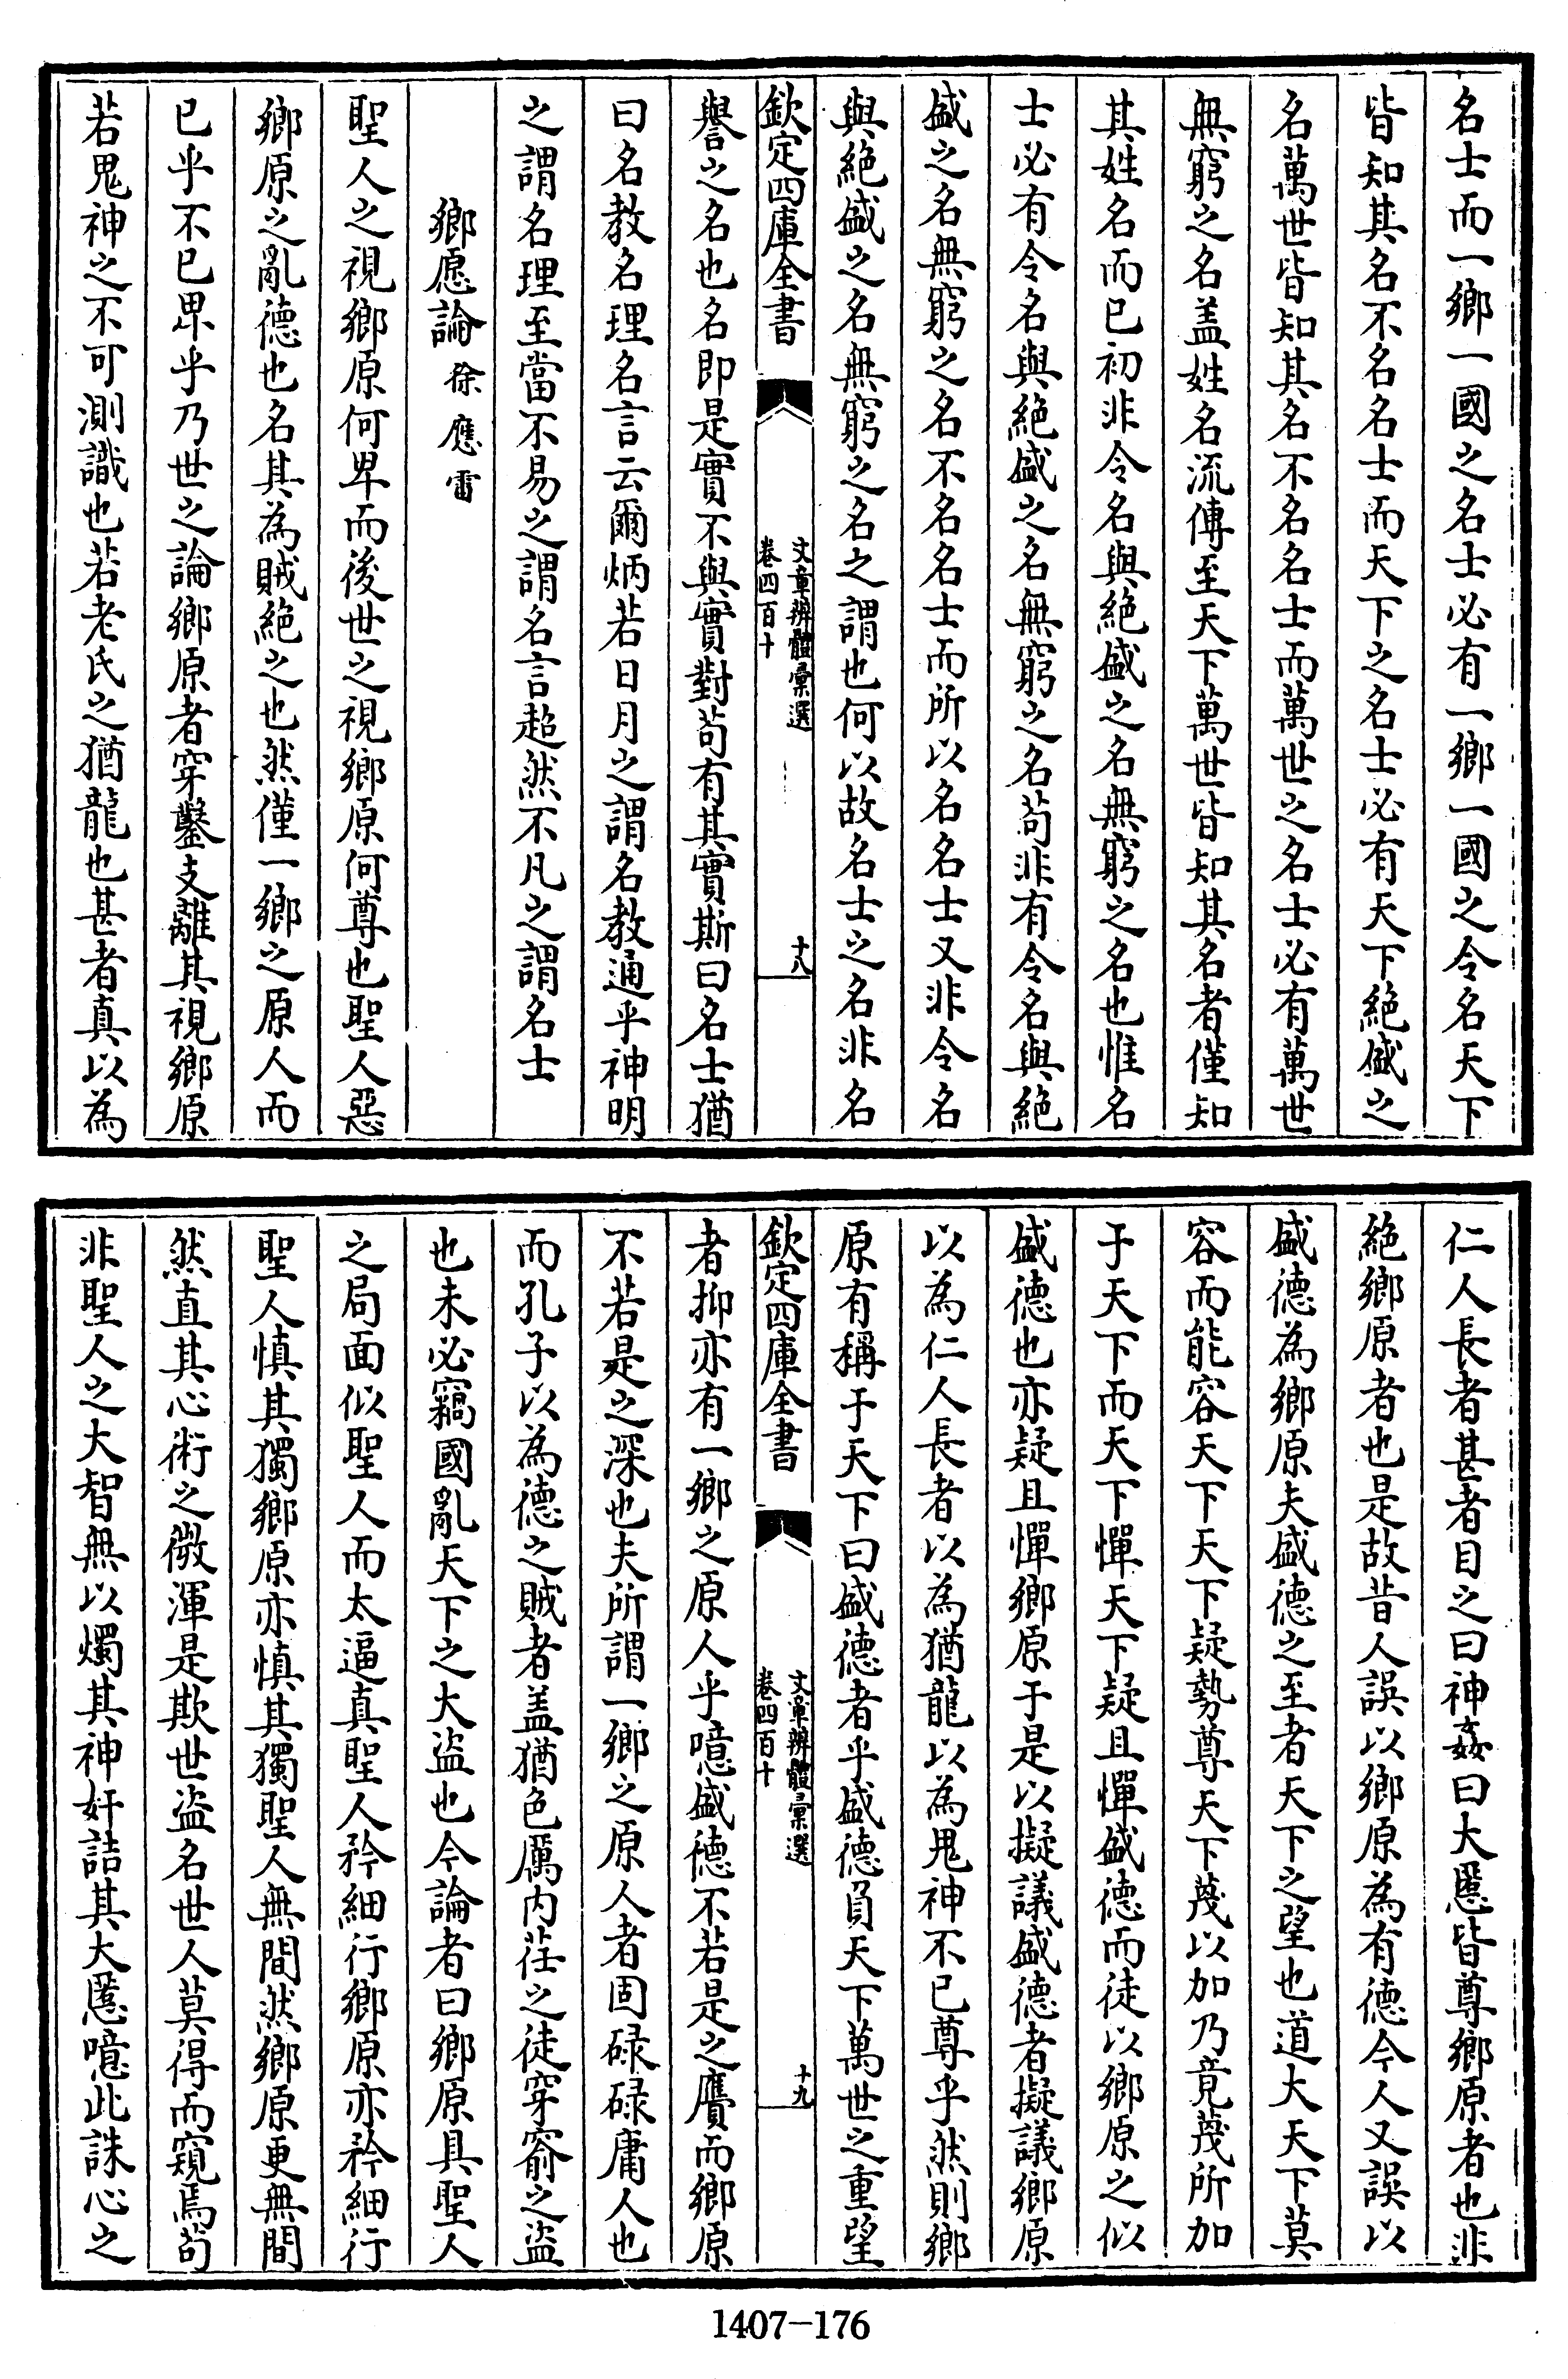 名士而一鄉一國之名士必有一鄉一國之令名天下
皆知其名不名名士而天下之名士必有天下絕盛之
名萬世皆知其名不名名士而萬世之名士必有萬世
無窮之名盖姓名流傳至天下萬世皆知其名者僅知
其姓名而已初非令名與絕盛之名無窮之名也惟名
士必有令名與絕盛之名無窮之名苟非有令名與絕
盛之名無窮之名不名名士而所以名名士又非令名
與絕盛之名無窮之名之謂也何以故名士之名非名
欽定四庫全書
文章辨體彙選
卷四百十
十八
譽之名也名即是實不與實對苟有其實斯曰名士猶
曰名教名理名言云爾炳若日月之謂名教通乎神明
之謂名理至當不易之謂名言超然不凡之謂名士
鄉愿論徐應雷
聖人之視鄉原何卑而後世之視鄉原何尊也聖人惡
鄉原之亂德也名其為賊絕之也然僅一鄉之原人而
已乎不已卑乎乃世之論鄉原者穿鑿支離其視鄉原
若鬼神之不可測識也若老氏之猶龍也甚者真以為
仁人長者甚者目之曰神姦曰大慝皆尊鄉原者也非
絕鄉原者也是故昔人誤以鄉原為有德今人又誤以
盛德為鄉原夫盛德之至者天下之望也道大天下莫
容而能容天下天下疑勢尊天下蔑以加乃竟蔑所加
于天下而天下憚天下疑且憚盛德而徒以鄉原之似
盛德也亦疑且憚鄉原于是以擬議盛德者擬議鄉原
以為仁人長者以為猶龍以為鬼神不已尊乎然則鄉
原有稱于天下曰盛德者乎盛德負天下萬世之重望
欽定四庫全書
文章辨體彙選
卷四百十
十九
者抑亦有一鄉之原人乎噫盛德不若是之贗而鄉原
不若是之深也夫所謂一鄉之原人者固碌碌庸人也
而孔子以為德之賊者盖猶色厲内荏之徒穿窬之盜
也未必竊國亂天下之大盜也今論者曰鄉原具聖人
之局面似聖人而太逼真聖人矜細行鄉原亦矜細行
聖人慎其獨鄉原亦慎其獨聖人無間然鄉原更無間
然直其心術之微渾是欺世盜名世人莫得而窺焉苟
非聖人之大智無以燭其神奸詰其大慝噫此誅心之
1407-176